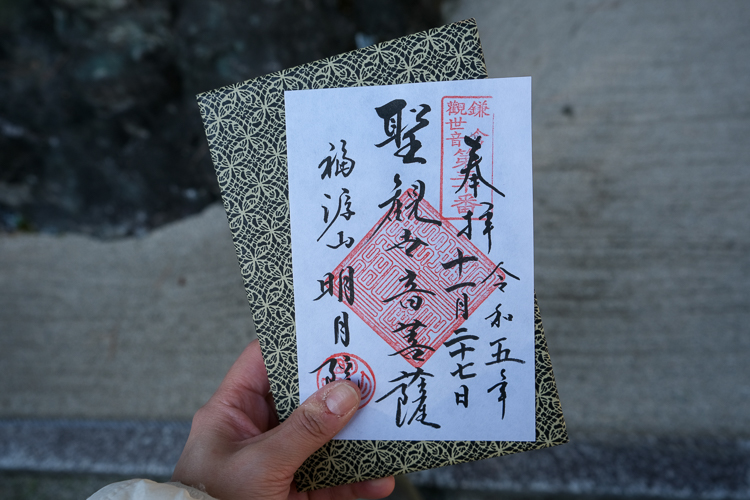 鎌倉
觀世音
第三十番
奉拝
令和五年
十一月二十七日
聖観世音菩薩
福源山
明月院